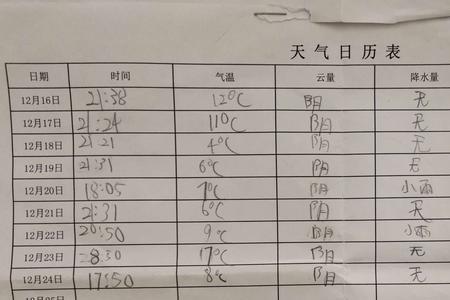 天气日历表
日期 时间 气温 云量 降水量
12月16日 21:38 12°C 阴 无
12月17日 21:24 11°C 阴 无
12月18日 21:21 4°C 阴 无
12月19日 21:31 6°C 阴 无
12月20日 18:05 7°C 阴 小雨
12月21日 21:31 6°C 阴 无
12月22日 20:50 9°C 阴 小雨
12月23日 8:30 17°C 阴 无
12月24日 17:50 8°C 阴 无